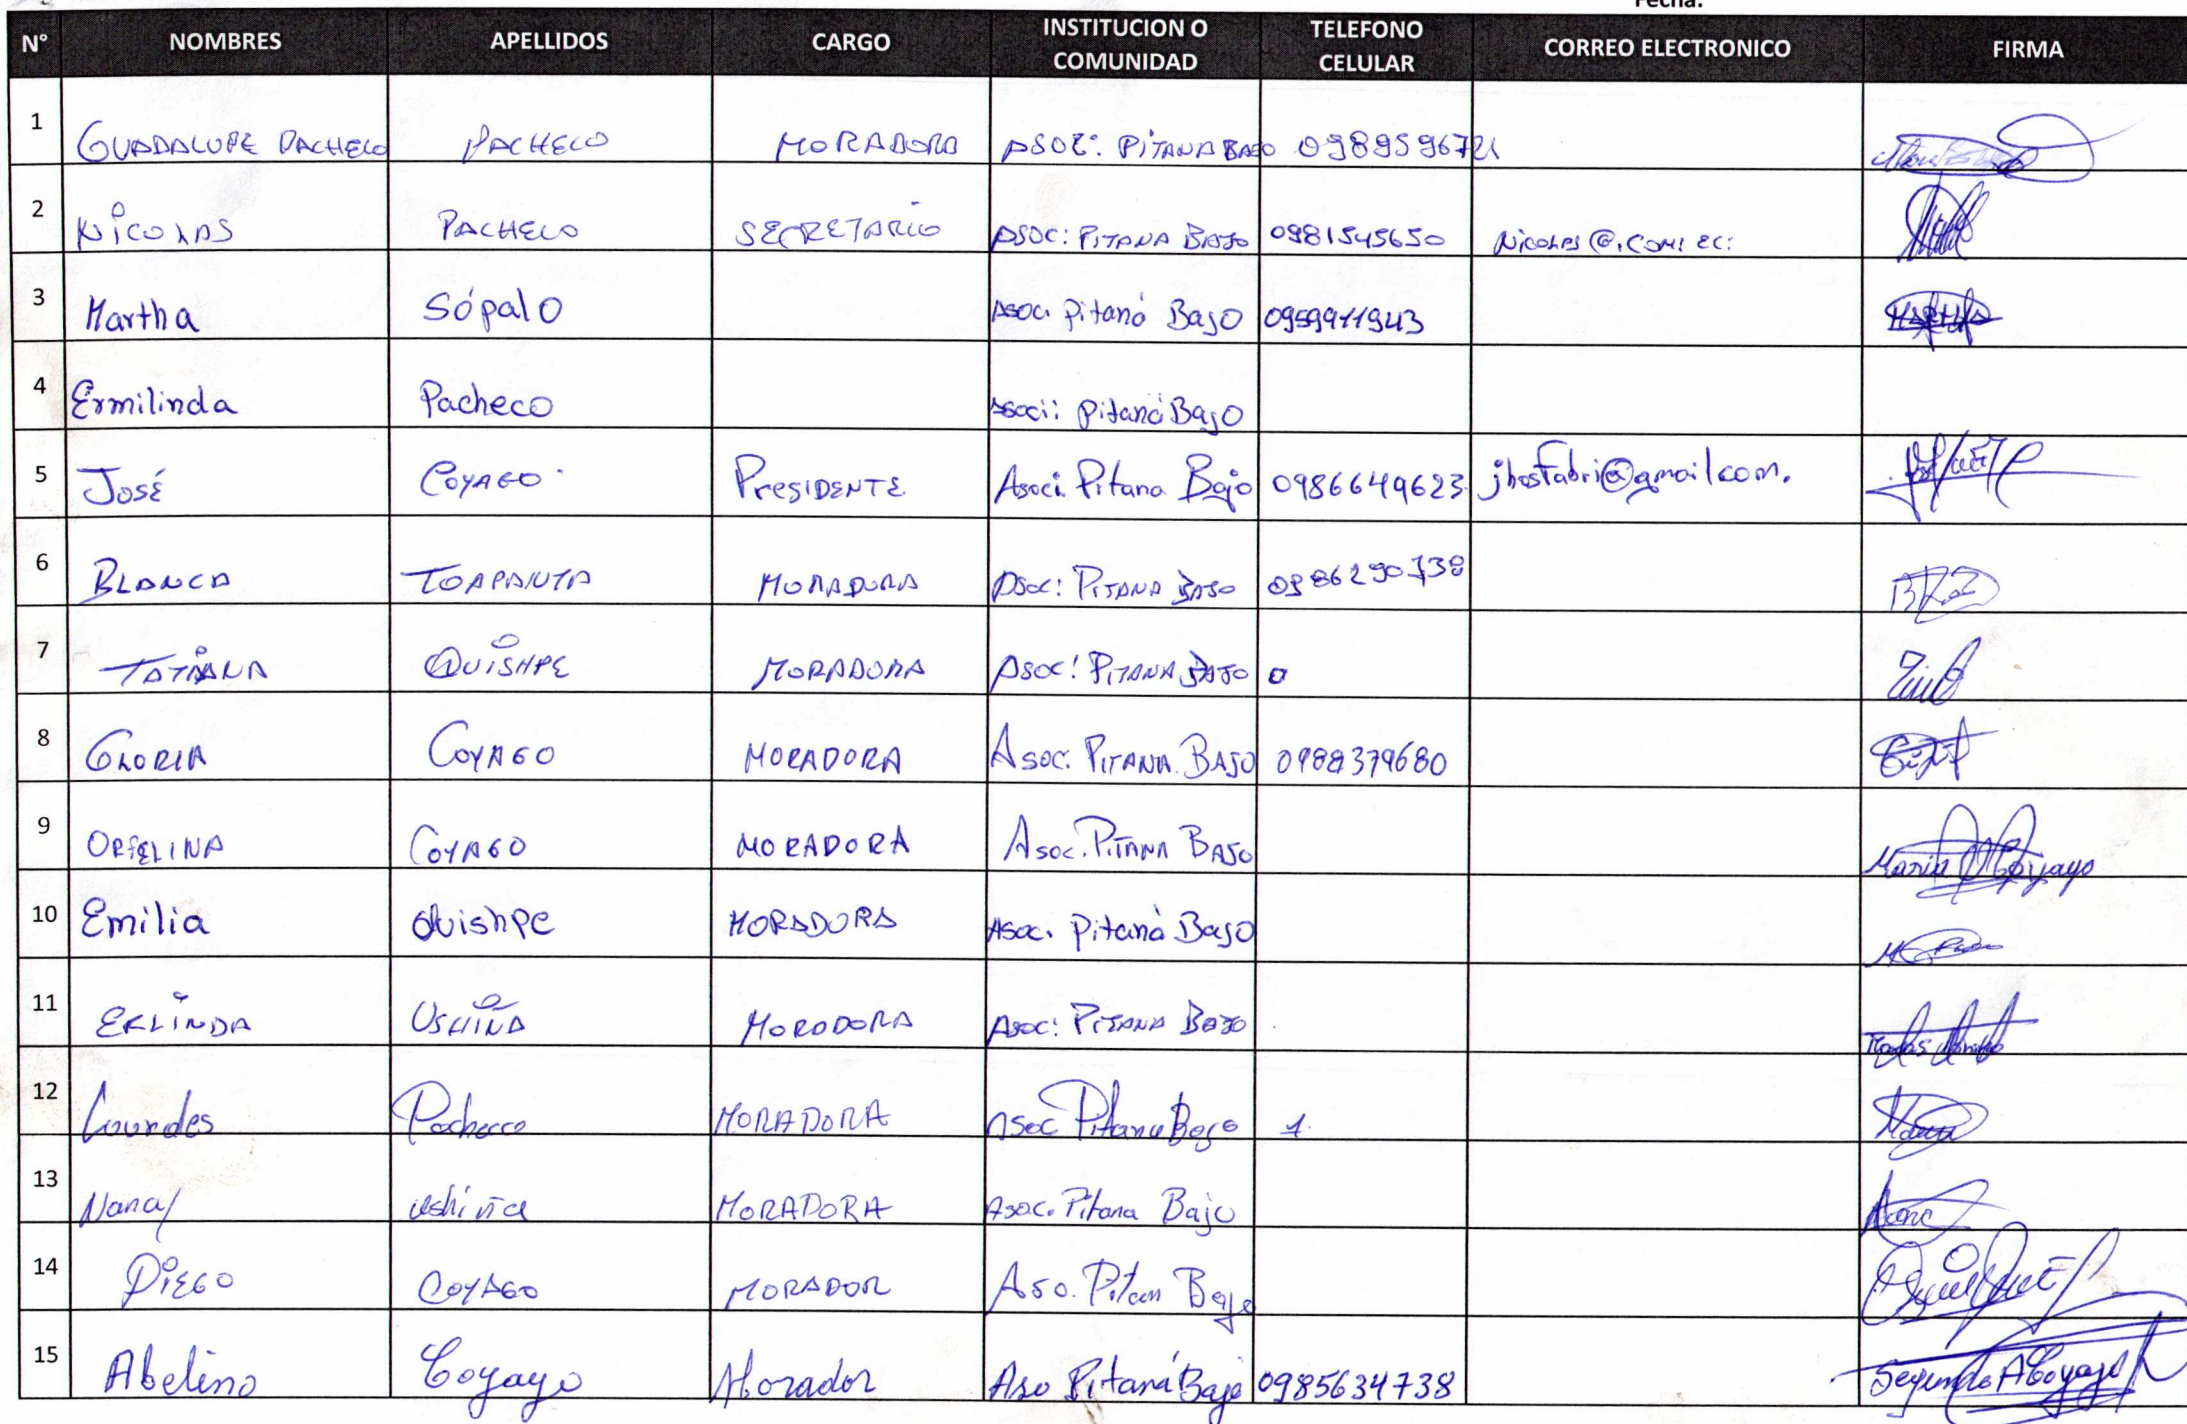 Fecha:
N° NOMBRES APELLIDOS CARGO INSTITUCION O COMUNIDAD TELEFONO CELULAR CORREO ELECTRONICO FIRMA
1 GUADALUPE PACHECO PACHECO MORADORA ASOC: PITANA BAJO 0989596721
2 NICOLAS PACHECO SECRETARIO ASOC: PITANA BAJO 0981545650 NICOLAS@.COM.EC:
3 Martha Sópalo Asoc. Pitaná Bajo 0959911943 MARTHA
4 Ermilinda Pacheco Asoci: Pitaná Bajo
5 José COYAGO Presidente Asoci. Pitana Bajo 0986649623 jhosfabri@gmail.com.
6 BLANCA TOAPANTA MORADORA ASOC: PITANA BAJO 0986290738
7 TATIANA QUISHPE MORADORA ASOC: PITANA BAJO 0
8 GLORIA COYAGO MORADORA Asoc. PITANA BAJO 0988379680
9 ORFELINA COYAGO MORADORA Asoc. PITANA BAJO Maria O Coyago
10 Emilia Quishpe MORADORA Asoc. Pitaná Bajo
11 ERLINDA USHIÑA MORODORA Asoc: PITANA BAJO
12 Lourdes Pacheco MORADORA Asoc Pitana Bajo 1.
13 ushiña MORADORA Asoc. Pitana Bajo
14 DIEGO COYAGO MORADOR Aso. Pitan Bajo
15 Abelino Coyago Morador Aso Pitaná Bajo 0985634738 Segundo A Coyago